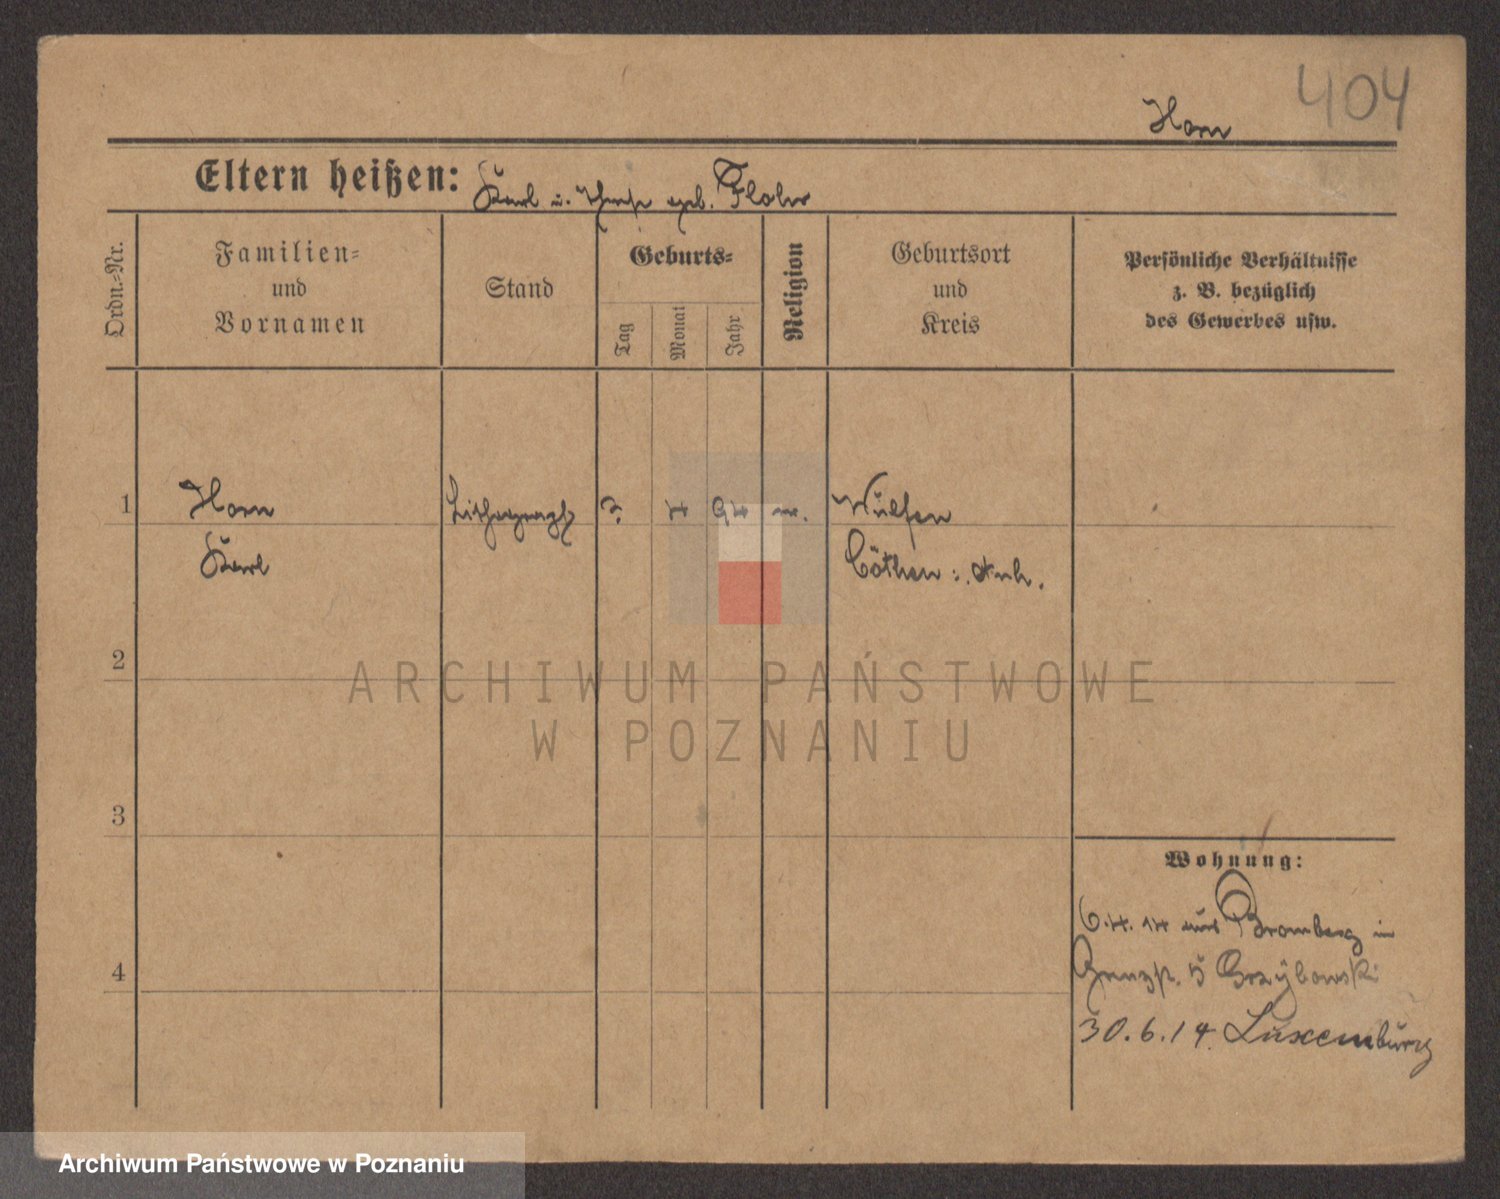 404
Horn
Eltern heißen: Karl u. Therese geb. Flohr
Ordn.-Nr.
Familien-
und
Vornamen
Stand
Geburts-
Tag
Monat
Jahr
Religion
Geburtsort
und
Kreis
Persönliche Verhältnisse
z. B. bezüglich
des Gewerbes usw.
1
Horn
Karl
Lithograph
4
94
Wülfen
Cöthen Anh.
2
3
4
Wohnung:
6.4.14 aus Bromberg in
5 Grzybowski
30.6.14. Luxemburg
ARCHIWUM PAŃSTWOWE
W POZNANIU
Archiwum Państwowe w Poznaniu